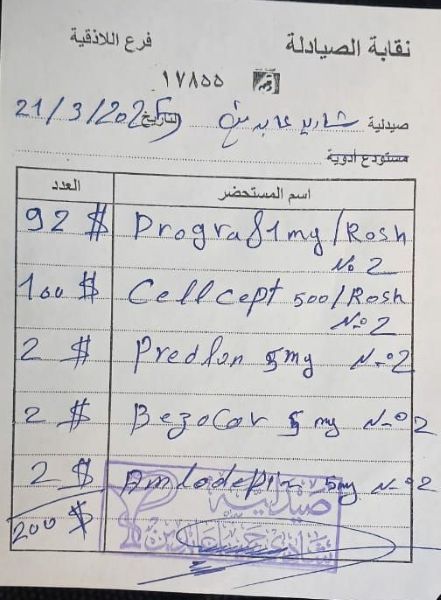 نقابة الصيادلة
فرع اللاذقية
١٧٨٥٥
صيدلية
التاريخ 21/3/202
مستودع أدوية
اسم المستحضر العدد
Prograf 1mg / Rosh 92 $
No 2
Cellcept 500 / Rosh 100 $
No 2
Predlon 5mg No 2 2 $
Bezocor 5 mg No 2 2 $
Amlodepin 5mg No 2 2 $
200 $
صيدلية